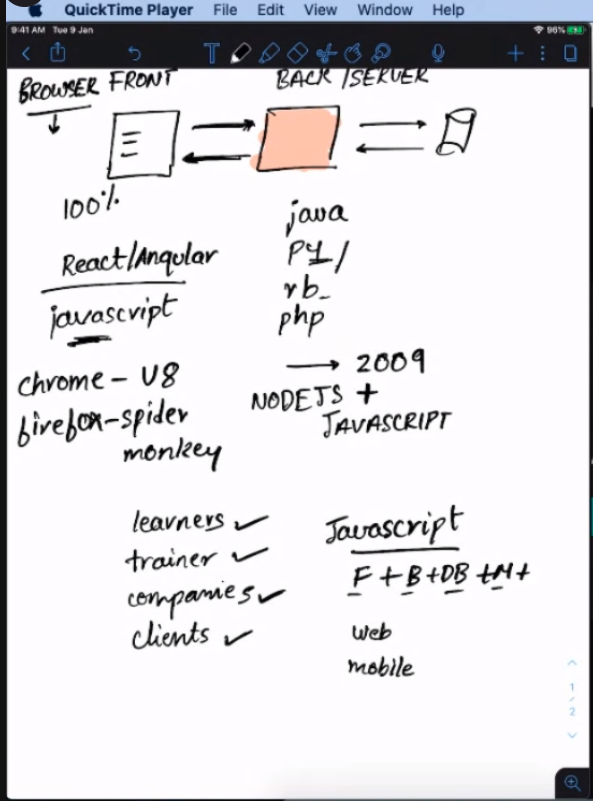 QuickTime Player File Edit View Window Help
9:41 AM Tue 9 Jan 96%
T
BROWSER FRONT BACK/SERVER
100%
React/Angular
javascript
java
PY/
rb_
php
→ 2009
chrome - V8
NODEJS +
firefox-spider
JAVASCRIPT
monkey
learners ✓
trainer ✓
companies ✓
clients ✓
Javascript
F + B + DB + M +
web
mobile
1
2